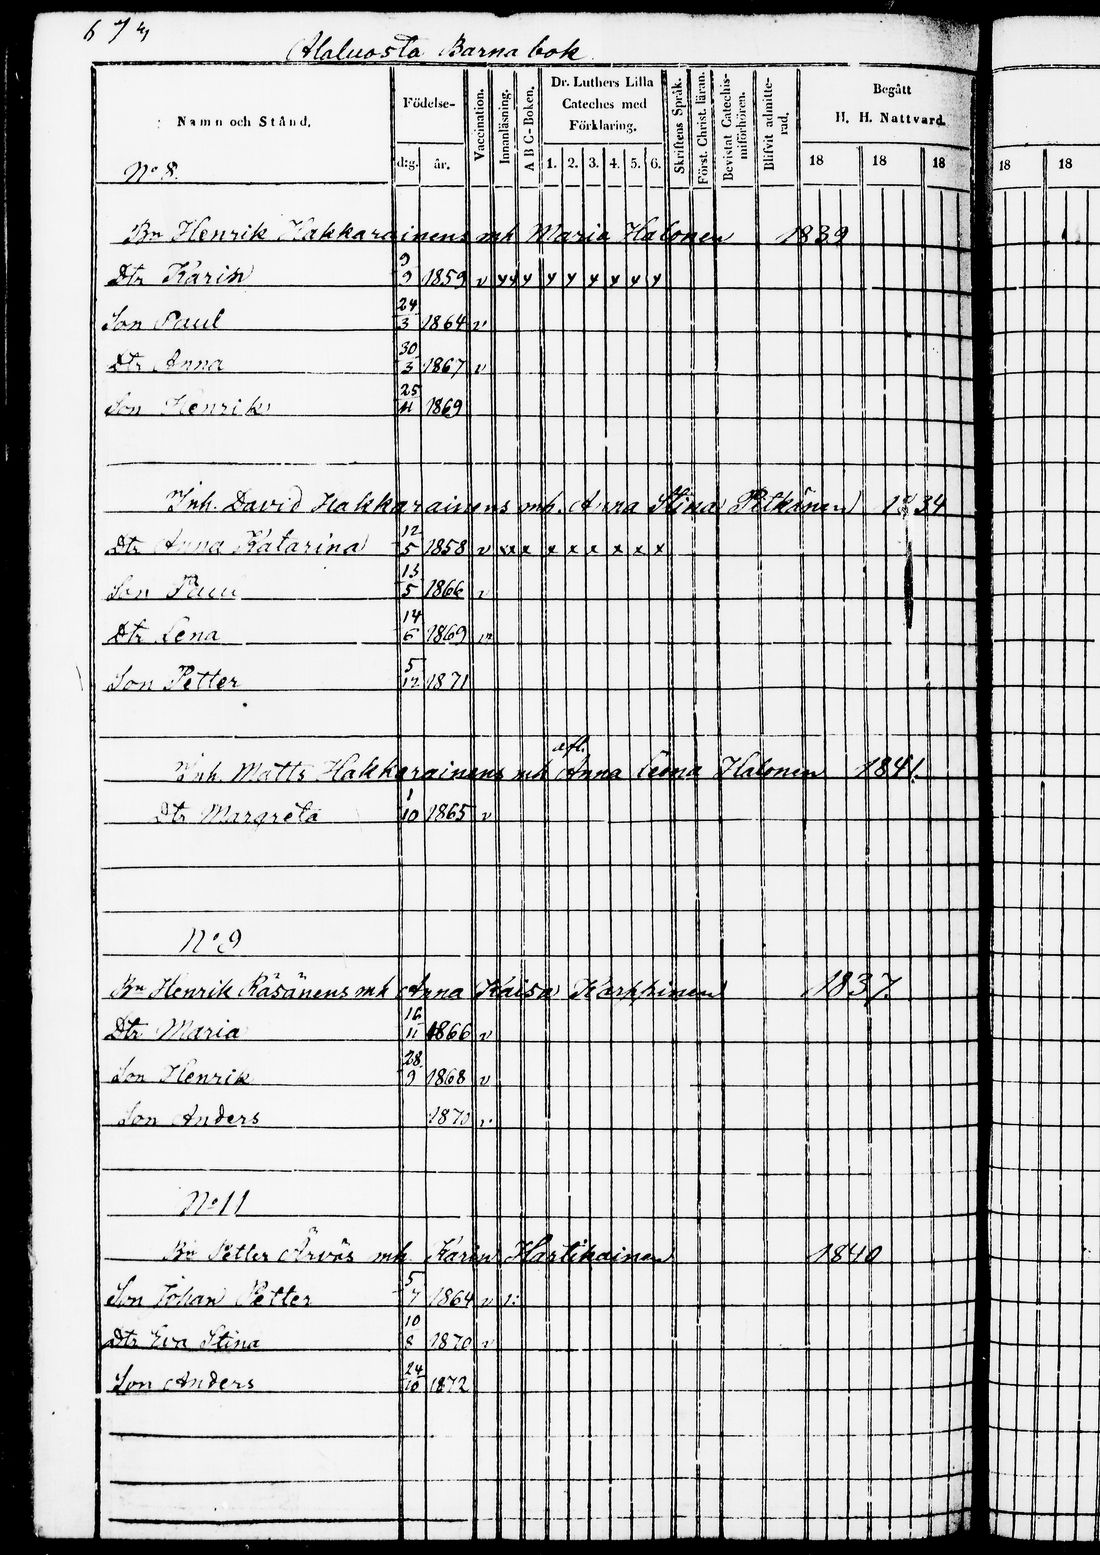 Alaluosta Barna bok
Namn och Stånd.
Födelse-
dg. år.
Vaccination.
Innanläsning.
A B C-Boken.
Dr. Luthers Lilla
Cateches med
Förklaring.
1. 2. 3. 4. 5. 6.
Skriftens Språk.
Först. Christ. läran.
Bevistat Catechis-
miförhören.
Blifvit admitte-
rad.
Begått
H. H. Nattvard.
18 18 18 18 18
No 8.
Bn Henrik Hakkarainens mh Maria Halonen 1839
Dtr Karin 9/9 1859 v x x x x x x x x x
Son Paul 24/3 1864 v
Dtr Anna 30/3 1867 v
Son Henrik 25/11 1869
Inh. David Hakkarainens mh. Anna Stina Pitkänen 1834
Dtr Anna Katarina 12/5 1858 v x x x x x x x x x
Son Paul 13/5 1866 v
Dtr Lena 14/6 1869 v
Son Petter 5/12 1871
afl.
Inh. Matts Hakkarainens mh Anna Leena Halonen 1841.
Dtr Margreta 1/10 1865 v
No 9
Bn Henrik Räsänens mh Anna Kaisa Karppinen 1837.
Dtr Maria 16/11 1866 v
Son Henrik 28/9 1868 v
Son Anders v
No 11
Bn Petter Ärväs mh Karin Hartikainen 1840
Son Johan Petter 5/7 1864 v
Dtr Eva Stina 10/8 1870 v
Son Anders 24/10 1872